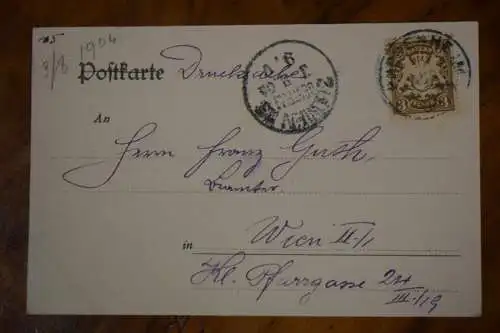 3/8 1904
Postkarte Drucksache
An
Herrn Franz Guth,
Beamter
in Wien II/1
Kl. Pfarrgasse 24
III./19
3 3